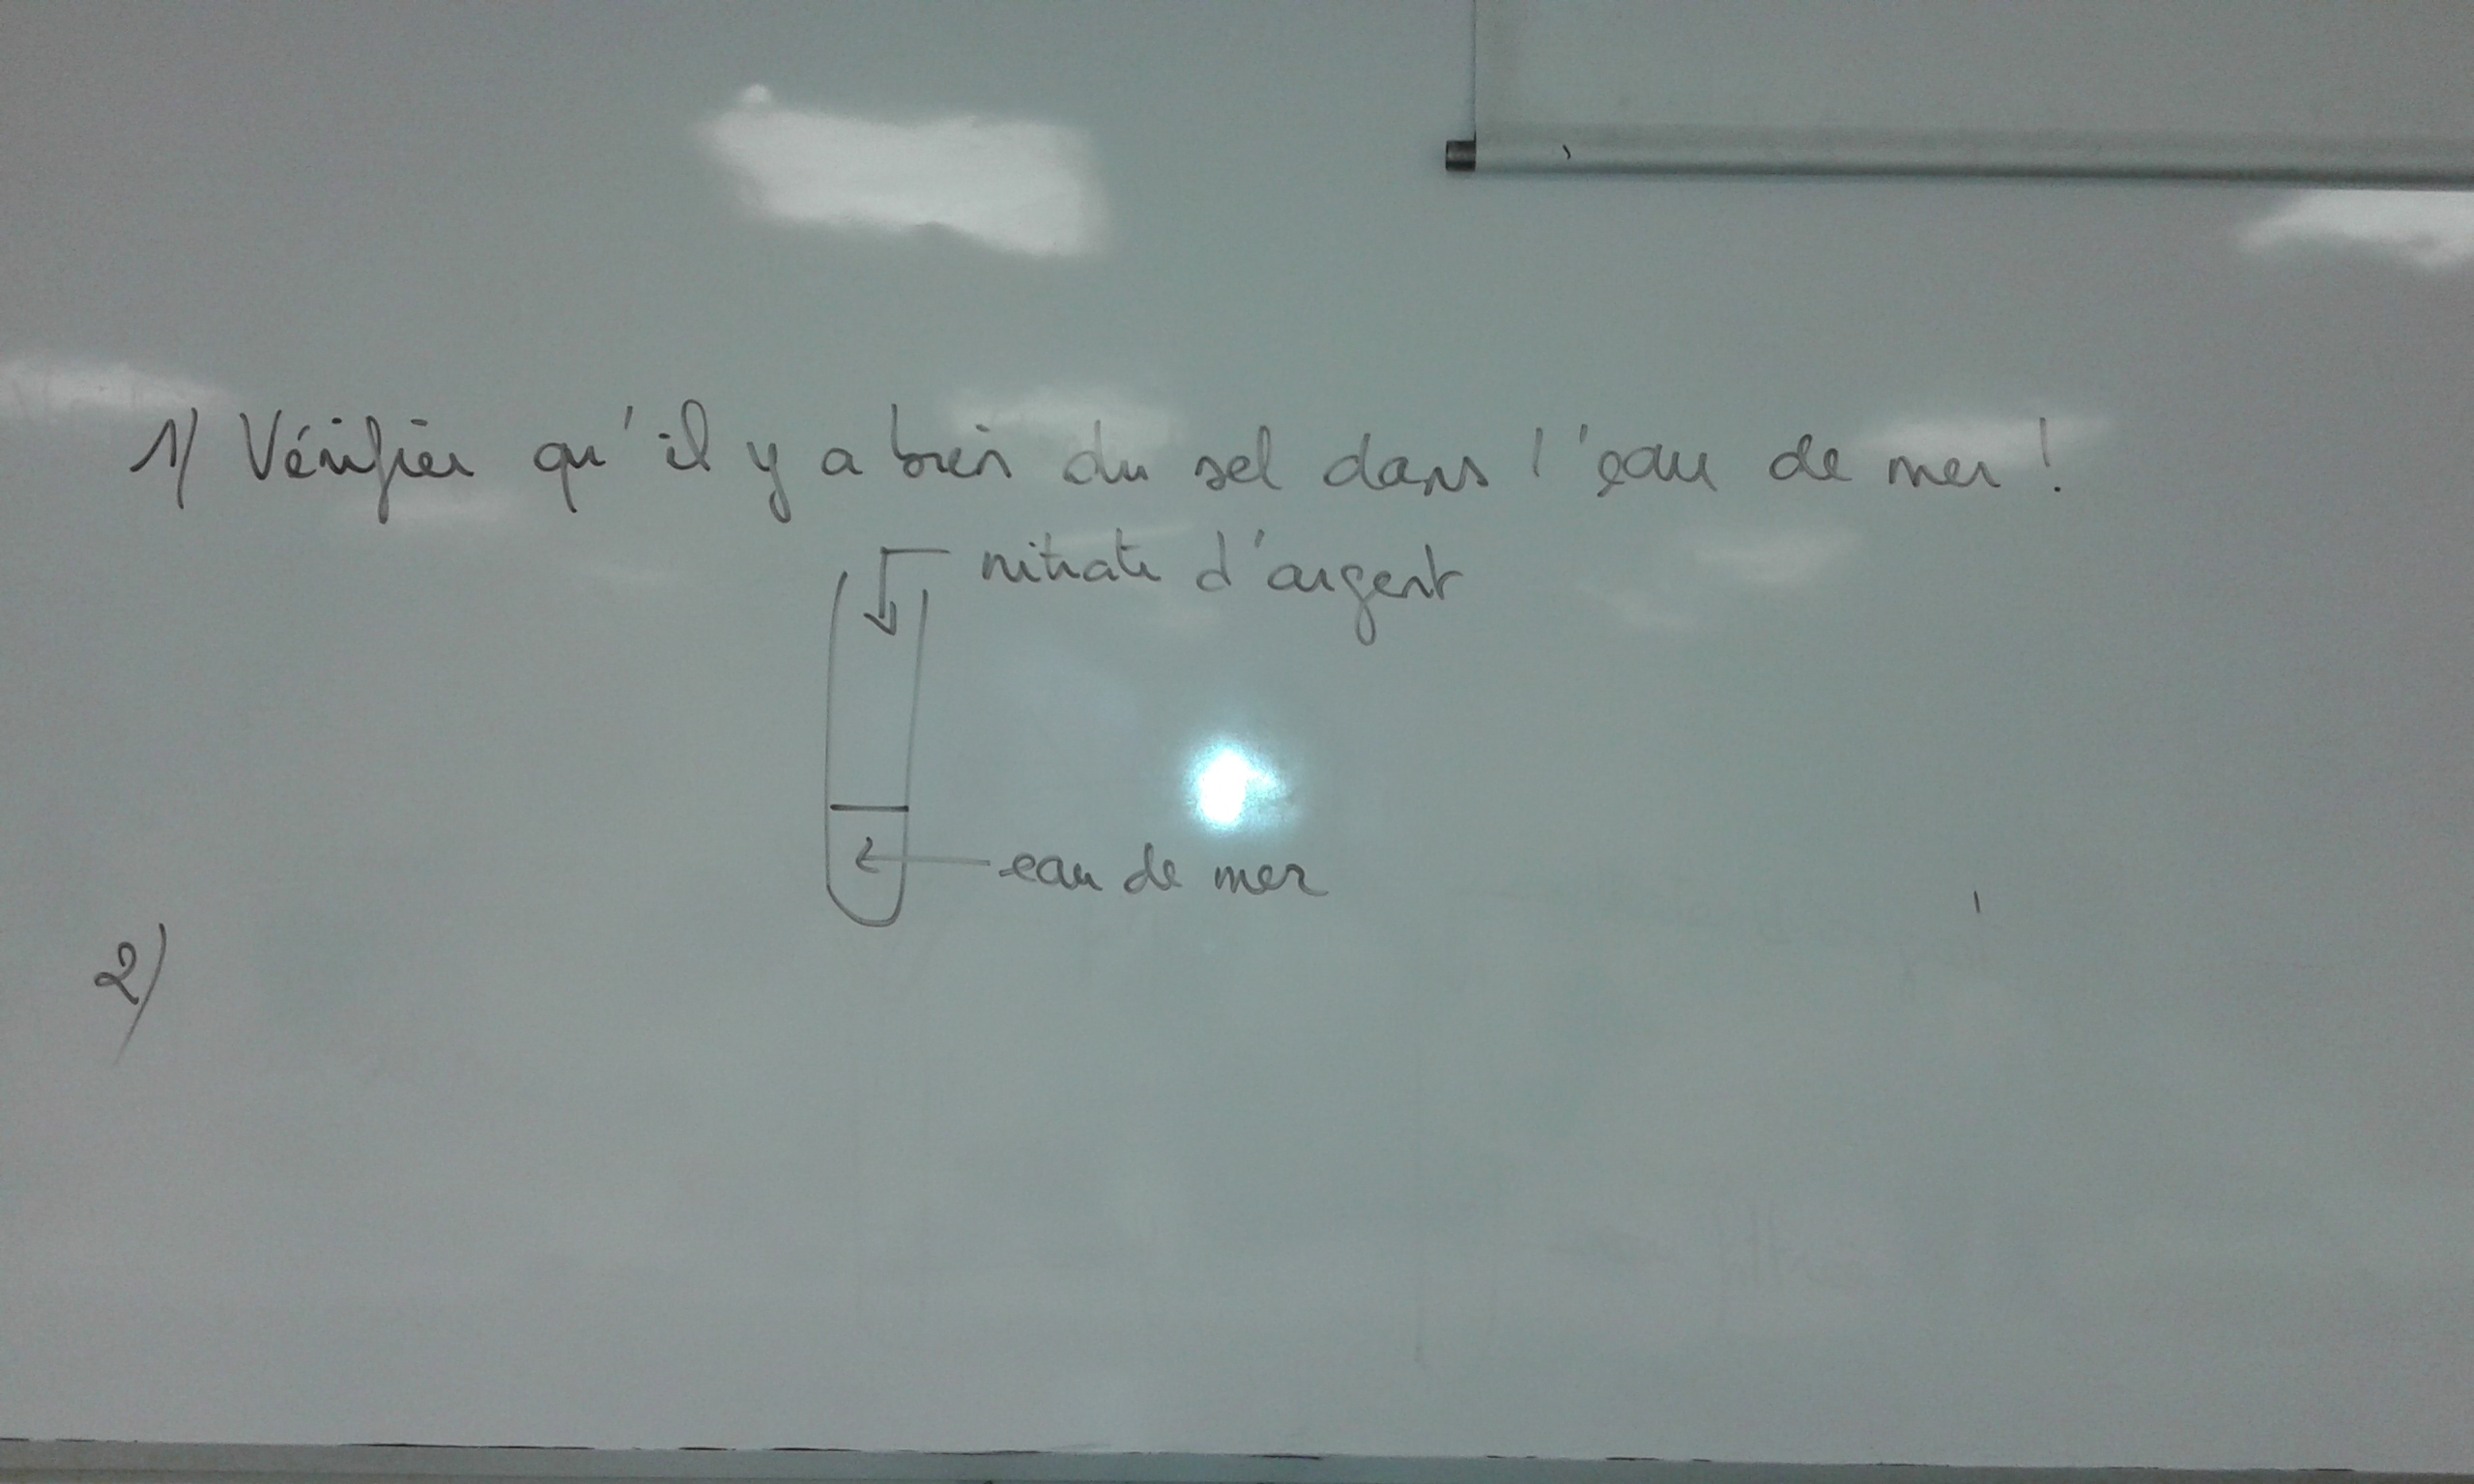 1) Vérifier qu'il y a bien du sel dans l'eau de mer !
nitrate d'argent
eau de mer
2)